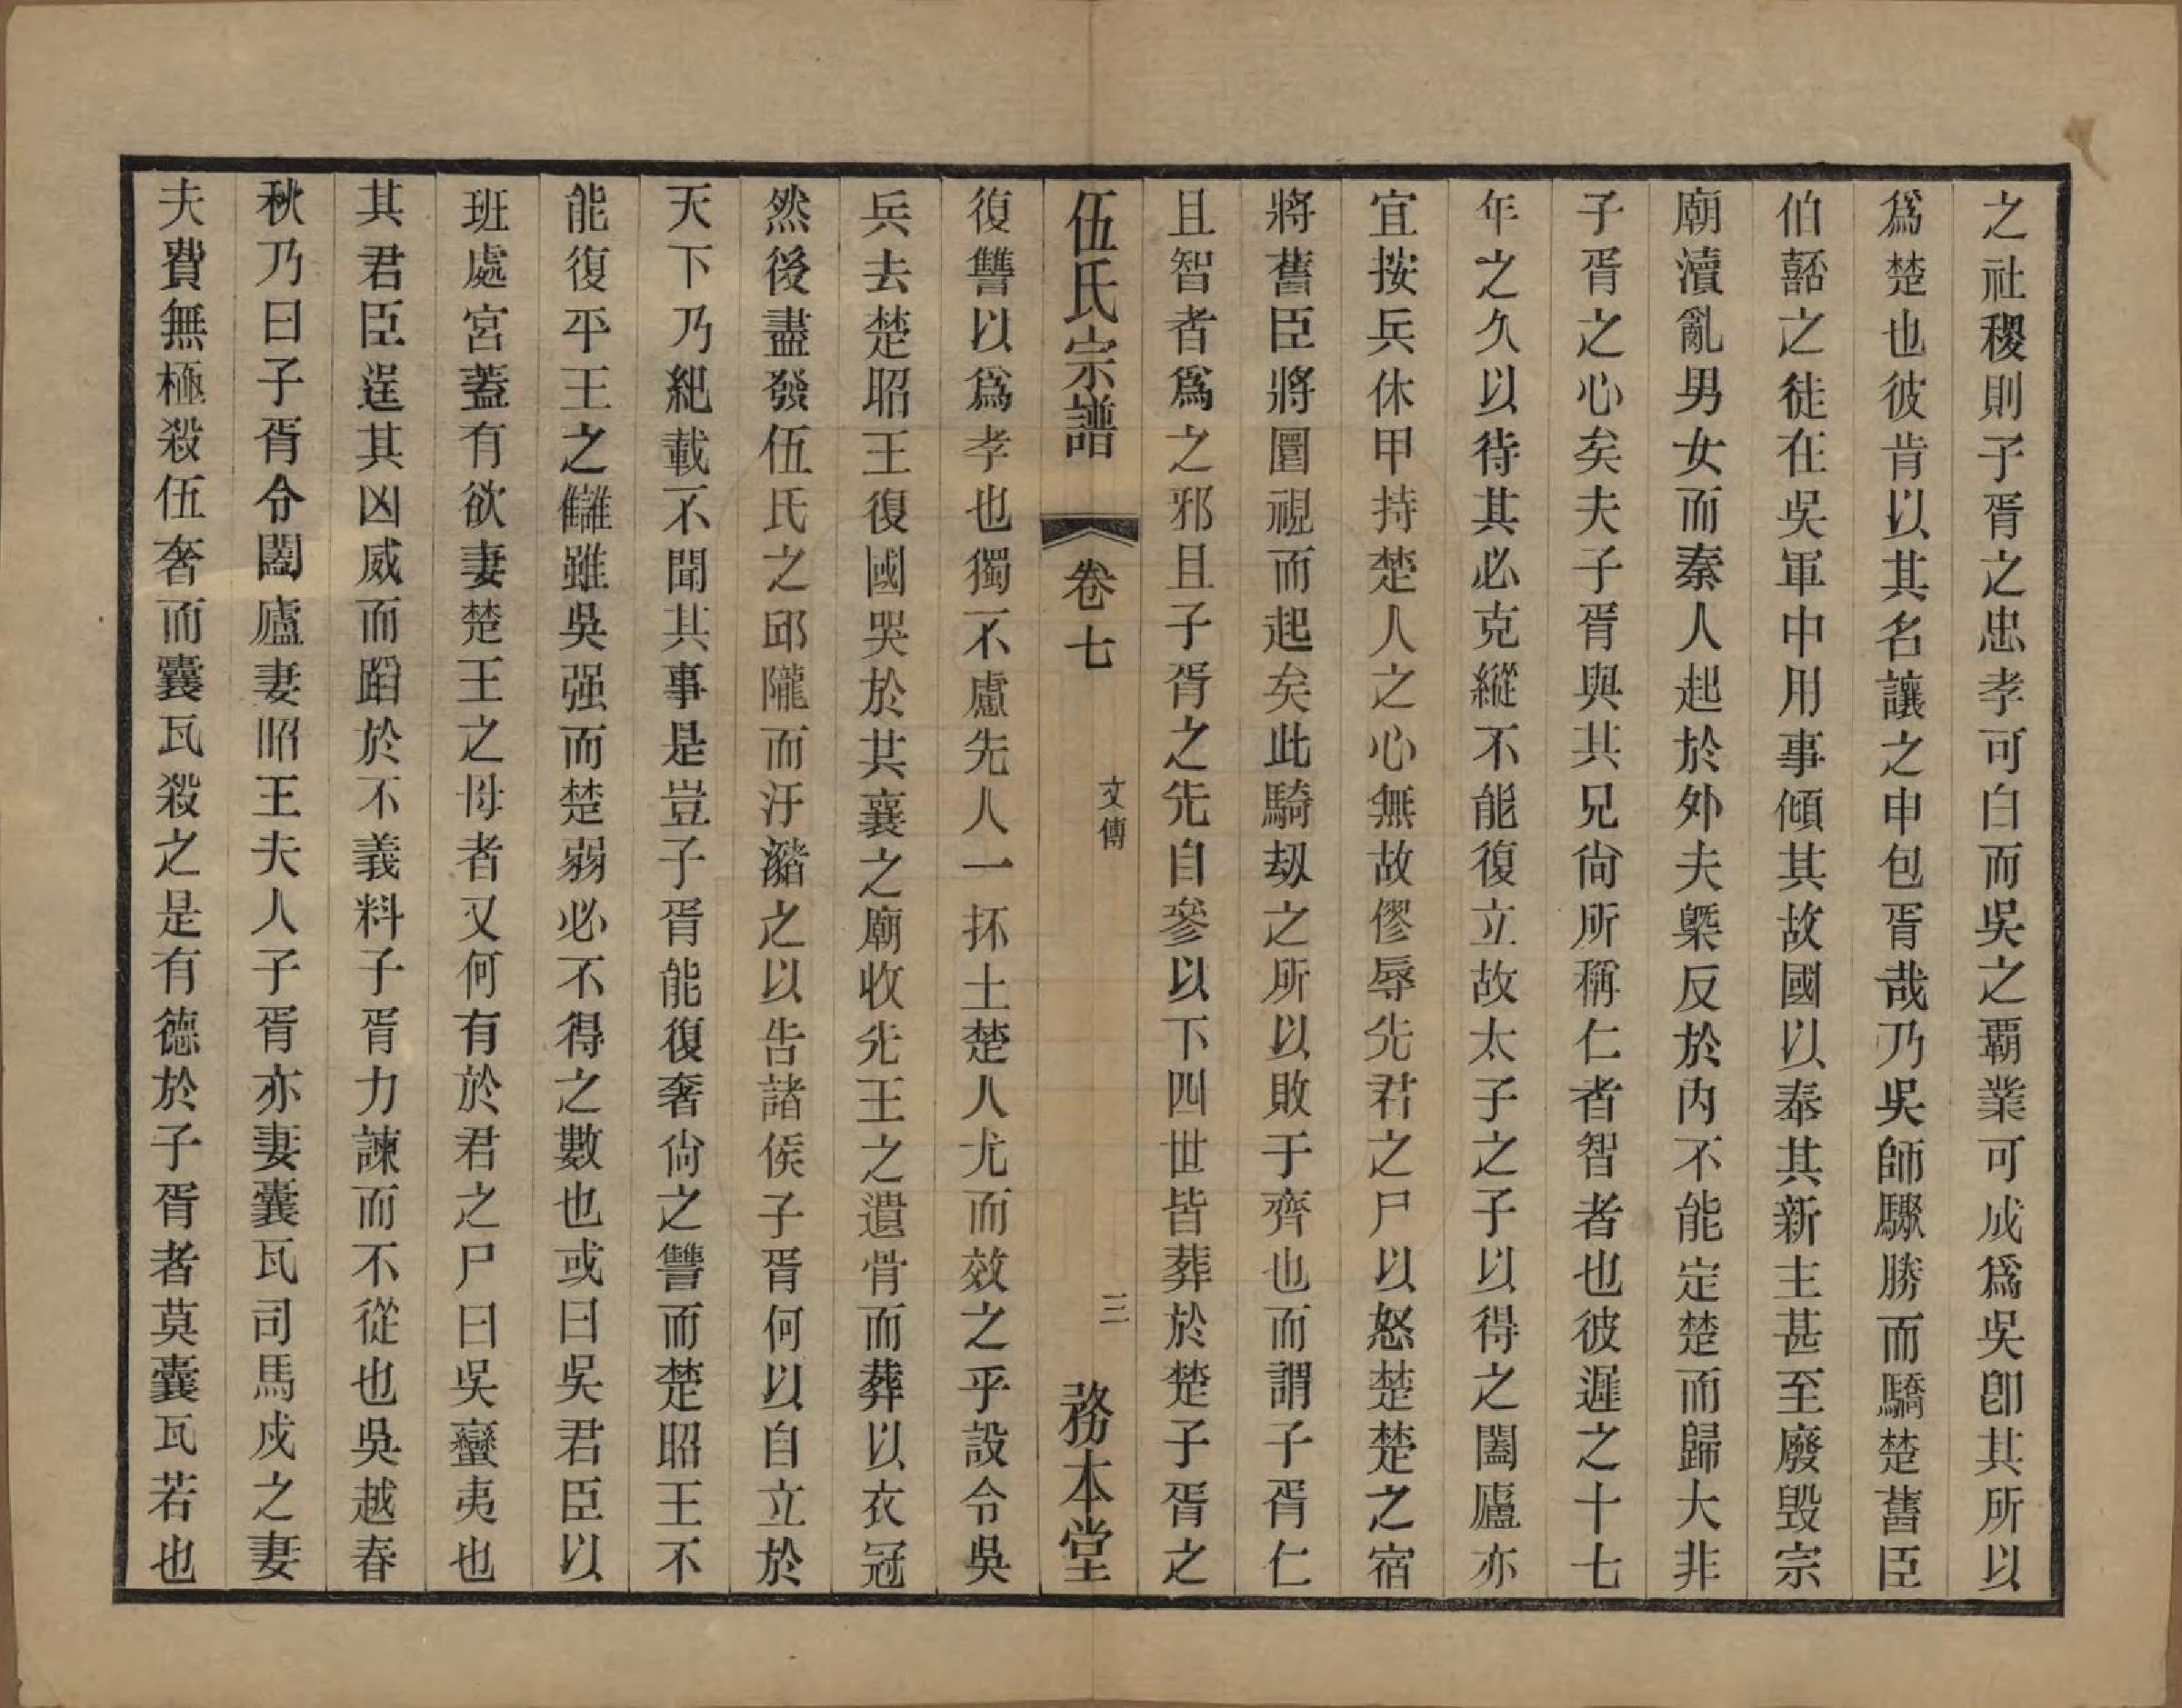 之社稷則子胥之忠孝可白而吳之覇業可成爲吳卽其所以
爲楚也彼肯以其名讓之申包胥哉乃吳師驟勝而驕楚舊臣
伯嚭之徒在吳軍中用事傾其故國以奉其新主甚至廢毀宗
廟瀆亂男女而秦人起於外夫槩反於內不能定楚而歸大非
子胥之心矣夫子胥與其兄尙所稱仁者智者也彼遲之十七
年之久以待其必克縱不能復立故太子之子以得之闔廬亦
宜按兵休甲持楚人之心無故僇辱先君之尸以怒楚楚之宿
將舊臣將圜視而起矣此騎劫之所以敗于齊也而謂子胥仁
且智者爲之邪且子胥之先自參以下四世皆葬於楚子胥之
伍氏宗譜 卷七 文傳 三 務本堂
復讐以爲孝也獨不慮先人一抔土楚人尤而效之乎設令吳
兵去楚昭王復國哭於其襄之廟收先王之遺骨而葬以衣冠
然後盡發伍氏之邱隴而汙瀦之以告諸侯子胥何以自立於
天下乃紀載不聞其事是豈子胥能復奢尙之讐而楚昭王不
能復平王之讎雖吳强而楚弱必不得之數也或曰吳君臣以
班處宮蓋有欲妻楚王之母者又何有於君之尸曰吳蠻夷也
其君臣逞其凶威而蹈於不義料子胥力諫而不從也吳越春
秋乃曰子胥令闔廬妻昭王夫人子胥亦妻囊瓦司馬戌之妻
夫費無極殺伍奢而囊瓦殺之是有德於子胥者莫囊瓦若也